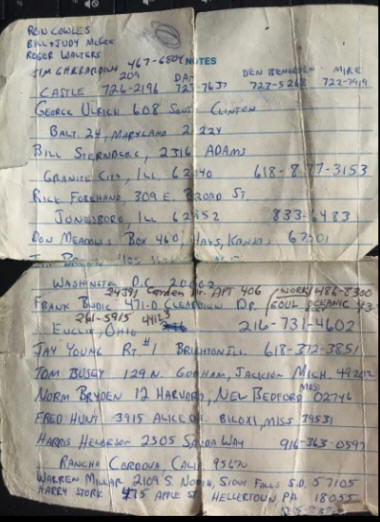 RON COWLES
BILL & JUDY McGEE
ROGER WALTERS
JIM 467-6804 NOTES
209 DEN MIKE
CASTLE 726-2196 723-7637 727-5268 722-7919
GEORGE ULRICH 608 SOUTH CLINTON
BALT. 24, MARYLAND 21224
BILL STERNBERG, 2316 ADAMS
GRANITE CITY, ILL 62040 618-877-3153
RICK FOREHAND, 309 E. BROAD ST.
JONESBORO, ILL 62952 833-6483
DON MEADOWS BOX 460, HAYS, KANSAS 67601
WASHINGTON D.C. 20002
24391 Garden Dr. APT 406 (WORK) 486-8300
FRANK 471-D CLEARVIEW DR.
261-5915 44123
EUCLID, OHIO 216-731-4602
JAY YOUNG RT #1 BRIGHTON ILL. 618-372-3851
TOM BUSBY 129 N. GORHAM, JACKSON MICH. 49202
MASS
NORM BRYDEN 12 HARVARD, NEW BEDFORD 02746
FRED HUNT 3915 ALICE DR. BILOXI, MISS 39531
HARRIS 2505 WAY 916-363-0597
RANCHO CORDOVA, CALIF 95670
WARREN MILLAR 2109 S. NORTON, SIOUX FALLS S.D. 57105
HARRY STORK 475 APPLE ST HELLERTOWN PA 18055